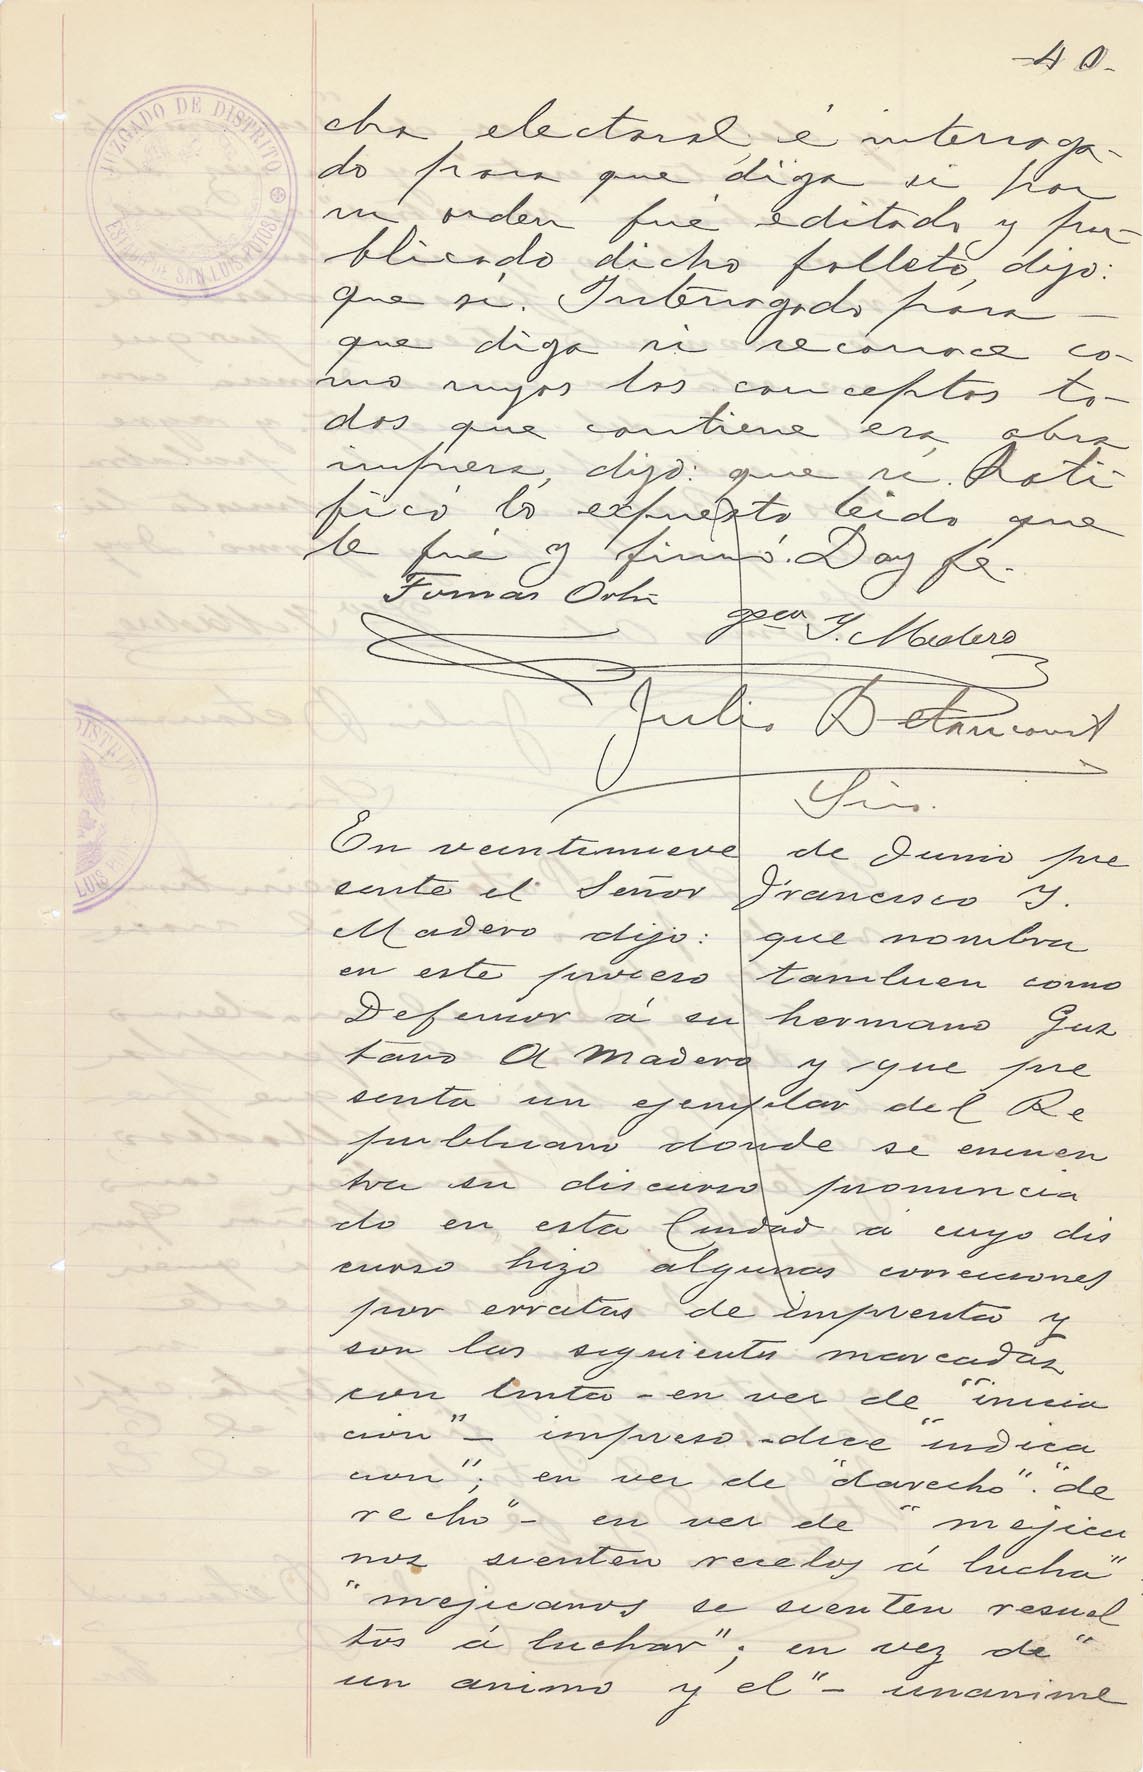 -40-
JUZGADO DE DISTRITO
ESTADO DE SAN LUIS POTOSI
cha electoral, é interroga-
do para que diga si por
su orden fué editado y pu-
blicado dicho folleto, dijo:
que sí. Interrogado para -
que diga si reconoce co-
mo suyos los conceptos to-
dos que contiene esa obra
impresa, dijo: que sí. Rati-
ficó lo expuesto leido que
le fué y firmó. Doy fe.
Tomas Ortiz
Fco. I. Madero
Julio Betancourt
Srio.
DISTRITO
LUIS
En veintinueve de Junio pre
sente el Señor Francisco I.
Madero dijo: que nombra
en este proceso tambien como
Defensor á su hermano Gus
tavo A Madero y que pre
senta un ejemplar del Re
publicano donde se encuen
tra su discurso pronuncia
do en esta Ciudad á cuyo dis
curso hizo algunas correcciones
por erratas de imprenta y
son las siguientes marcadas
con tinta - en vez de "inicia
cion" - impreso - dice "indica
cion"; en vez de "darecho". "de
recho" - en vez de "mejica
nos sienten recelos á lucha"
"mejicanos se sienten resuel
tos á luchar"; en vez de "
un animo y el" - unanime